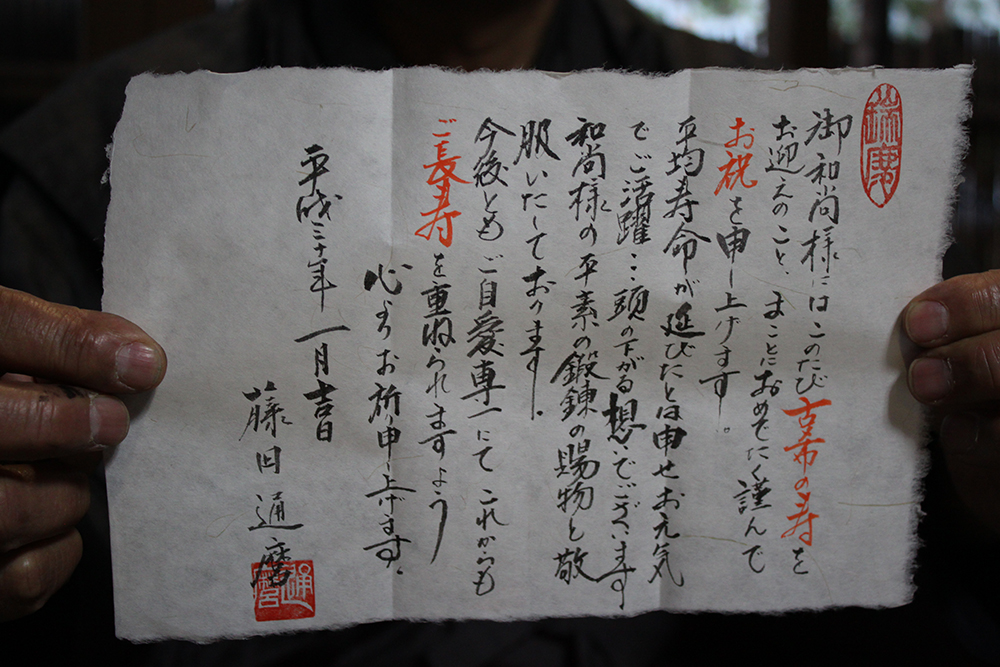 御和尚様にはこのたび古希の寿を
お迎えのこと、まことにおめでたく謹んで
お祝を申し上げます。
平均寿命が延びたとは申せお元気
でご活躍…頭の下がる想いでございます
和尚様の平素の鍛錬の賜物と敬
服いたしております。
今後ともご自愛専一にてこれからも
ご長寿を重ねられますよう
心よりお祈り申し上げます。
平成三十年一月吉日
藤田通麿